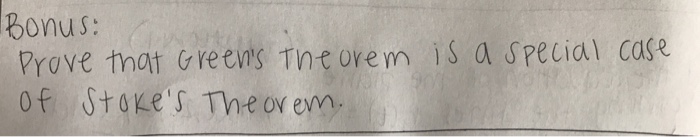 Bonus:
Prove that Green's Theorem is a special case
of Stoke's Theorem.